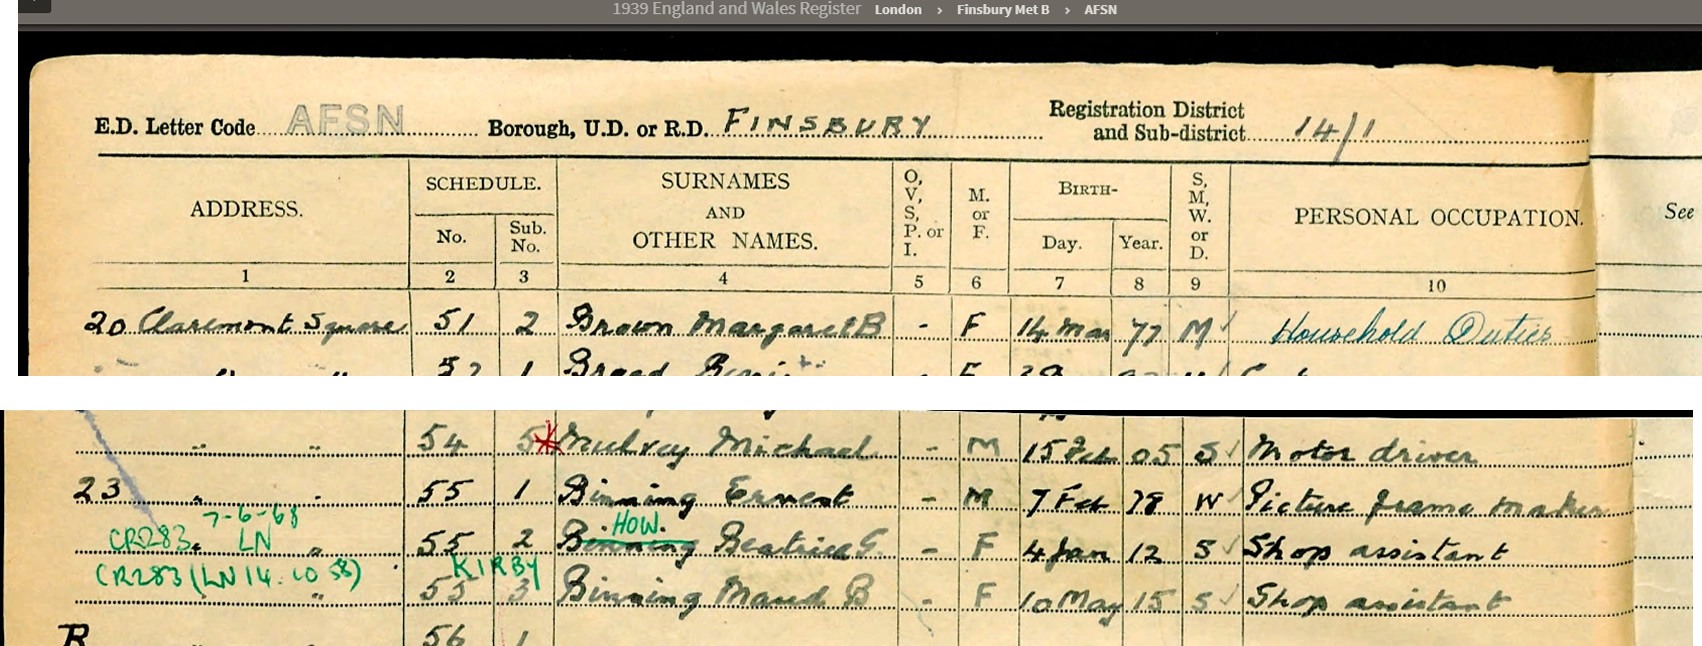 1939 England and Wales Register London > Finsbury Met B > AFSN
E.D. Letter Code AFSN Borough, U.D. or R.D. FINSBURY Registration District and Sub-district 14/1
ADDRESS. SCHEDULE. No. Sub. No. SURNAMES AND OTHER NAMES. O, V, S, P. or I. M. or F. BIRTH- Day. Year. S, M, W. or D. PERSONAL OCCUPATION. See
1 2 3 4 5 6 7 8 9 10
20 Claremont Square 51 2 Brown Margaret B - F 14 Mar 77 M Household Duties
52 1 Broad - F
" " 54 5 Mulvey Michael - M 15 Feb 05 S Motor driver
23 " " 55 1 Binning Ernest - M 7 Feb 78 W Picture frame maker
7-6-68 HOW.
CR283 LN " 55 2 Binning Beatrice G. - F 4 Jan 12 S Shop assistant
CR283 (LN 14.10.58) KIRBY
" 55 3 Binning Maud B - F 10 May 15 S Shop assistant
R 56 1